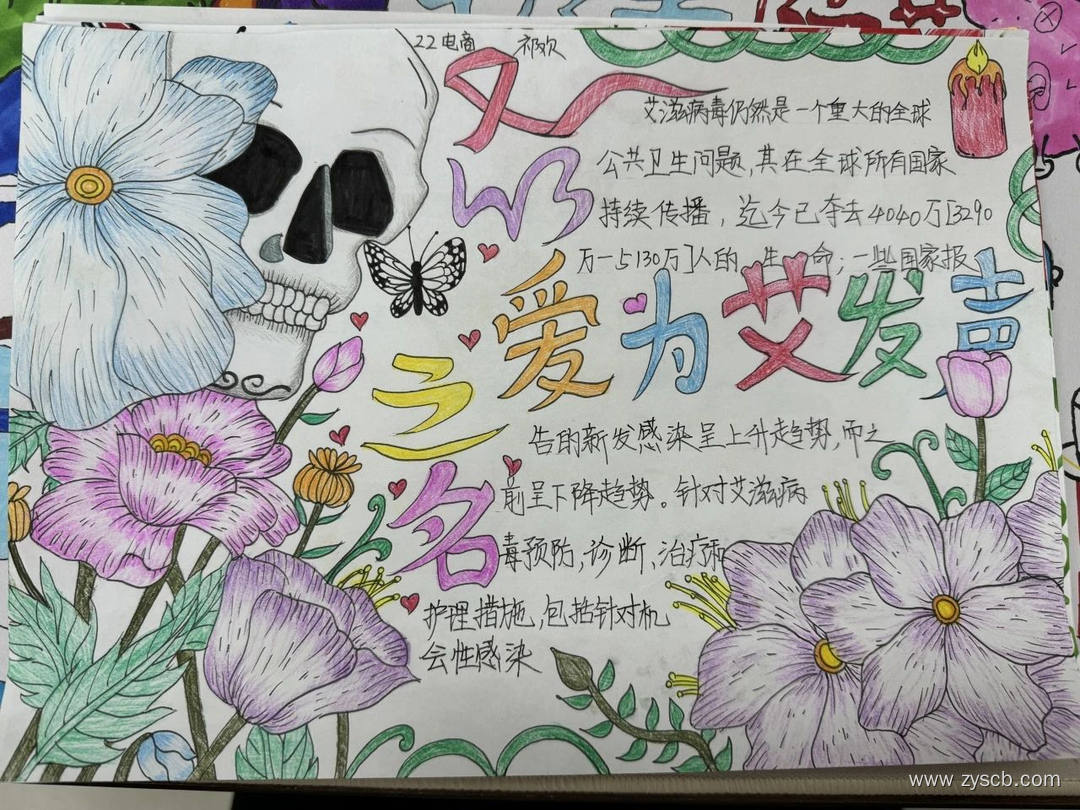 22电商 祁欢
艾滋病毒仍然是一个重大的全球
公共卫生问题,其在全球所有国家
持续传播,迄今已夺去4040万[3290
万-5130万]人的生命;一些国家报
以
爱为艾发声
之
名
告的新发感染呈上升趋势,而之
前呈下降趋势。针对艾滋病
毒预防,诊断、治疗和
护理措施,包括针对机
会性感染
www.zyscb.com